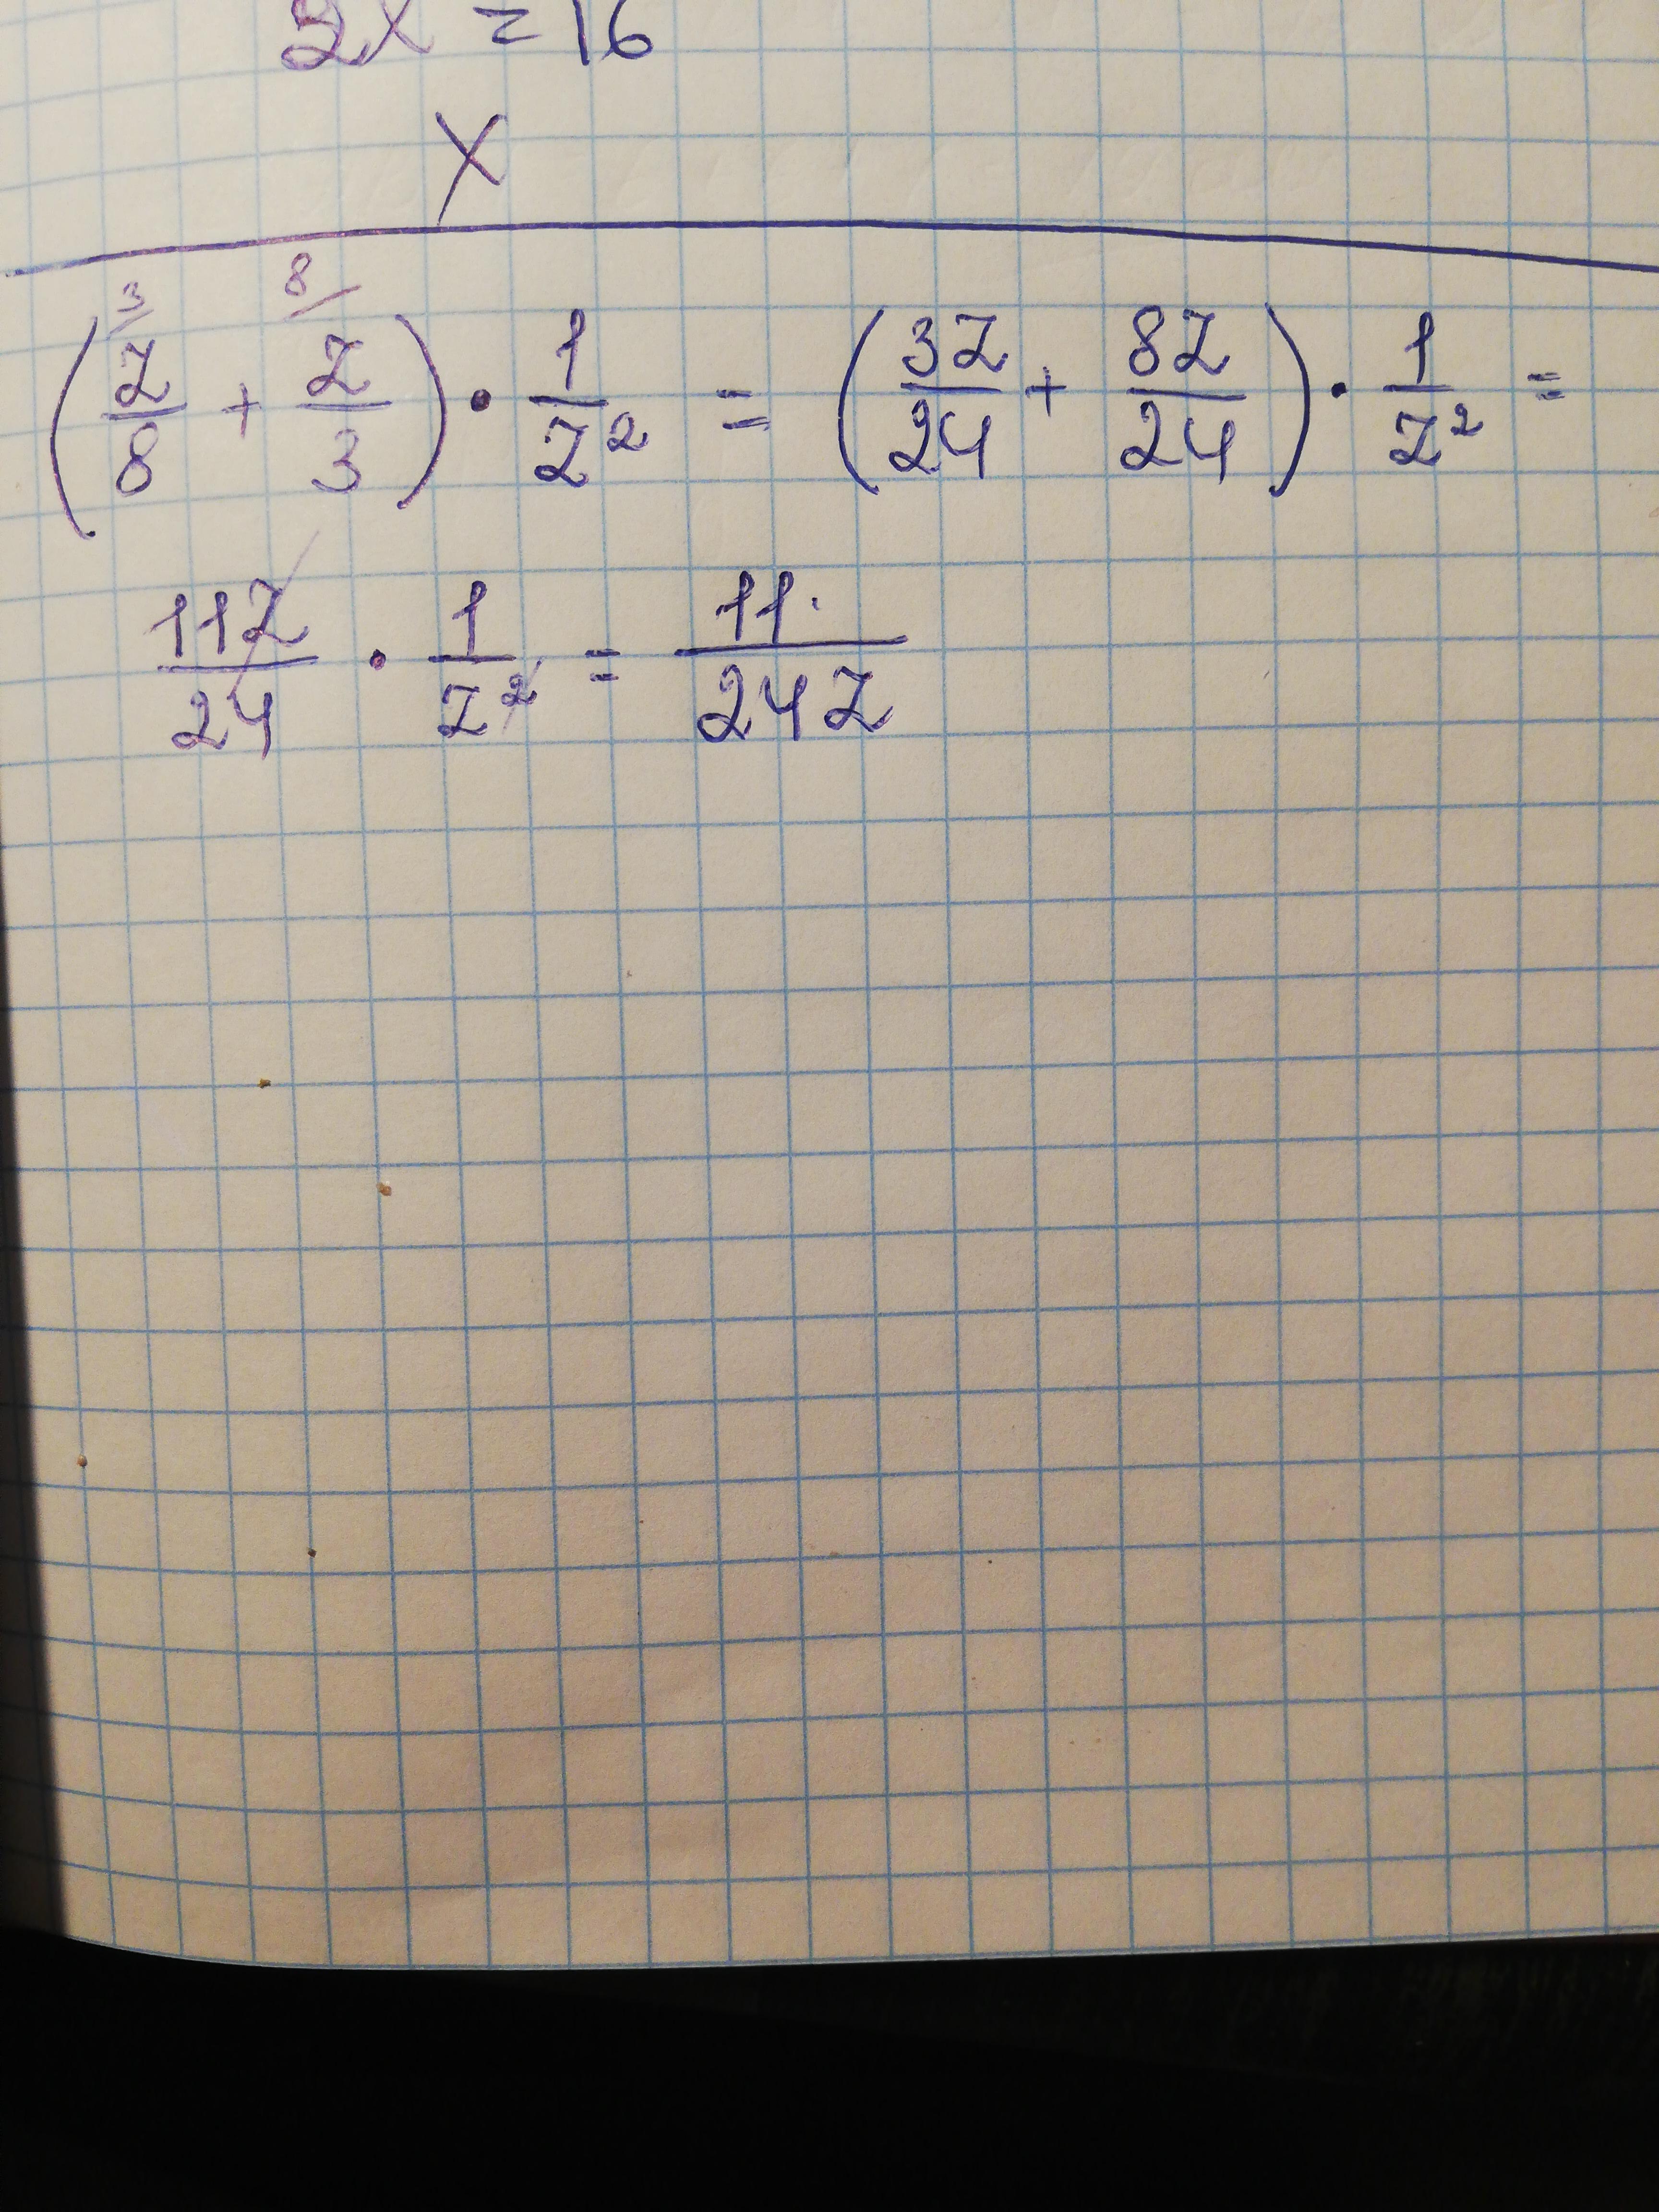 2x = 16
x
(3/ z/8 + 8/ z/3) · 1/z² = (3z/24 + 8z/24) · 1/z² =
11z/24 · 1/z² = 11/24z